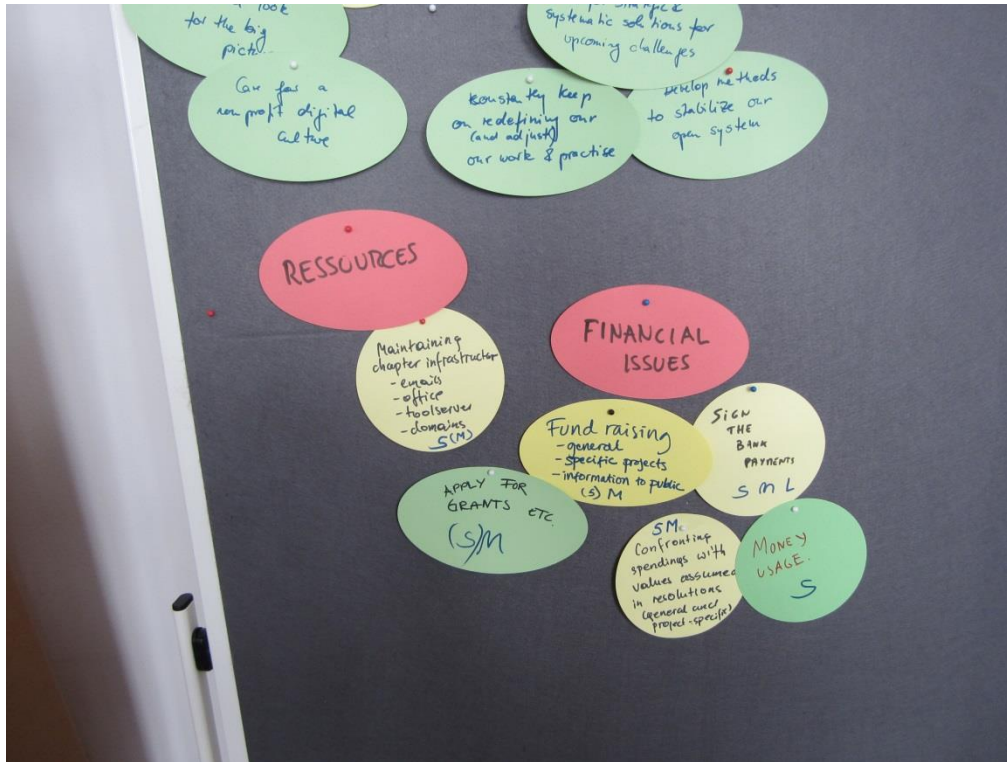 look
for the big
systematic solutions for
upcoming challenges
Care for a
non profit digital
culture
Constantly keep
on redefining our
(and adjust)
our work & practise
Develop methods
to stabilize our
open system
RESSOURCES
Maintaining
chapter infrastructur
- emails
- office
- toolserver
- domains
S(M)
FINANCIAL
ISSUES
Fund raising
- general
- specific projects
- information to public
(S) M
SIGN
THE
BANK
PAYMENTS
S M L
APPLY FOR
GRANTS ETC.
(S)M
SM
Confronting
spendings with
values assumed
in resolutions
(general and
project-specific)
MONEY
USAGE.
S